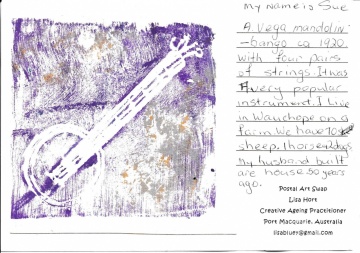 My name is Sue
A. Vega mandolin
-banjo ca 1920.
with four pairs
of strings. It was
very popular
instrument. I Live
in Wauchope on a
farm. We have 10
sheep, 1 horse, 2 dogs
my husband built
are house 50 years
ago.
Postal Art Swap
Lisa Hort
Creative Ageing Practitioner
Port Macquarie, Australia
lisabluer@gmail.com